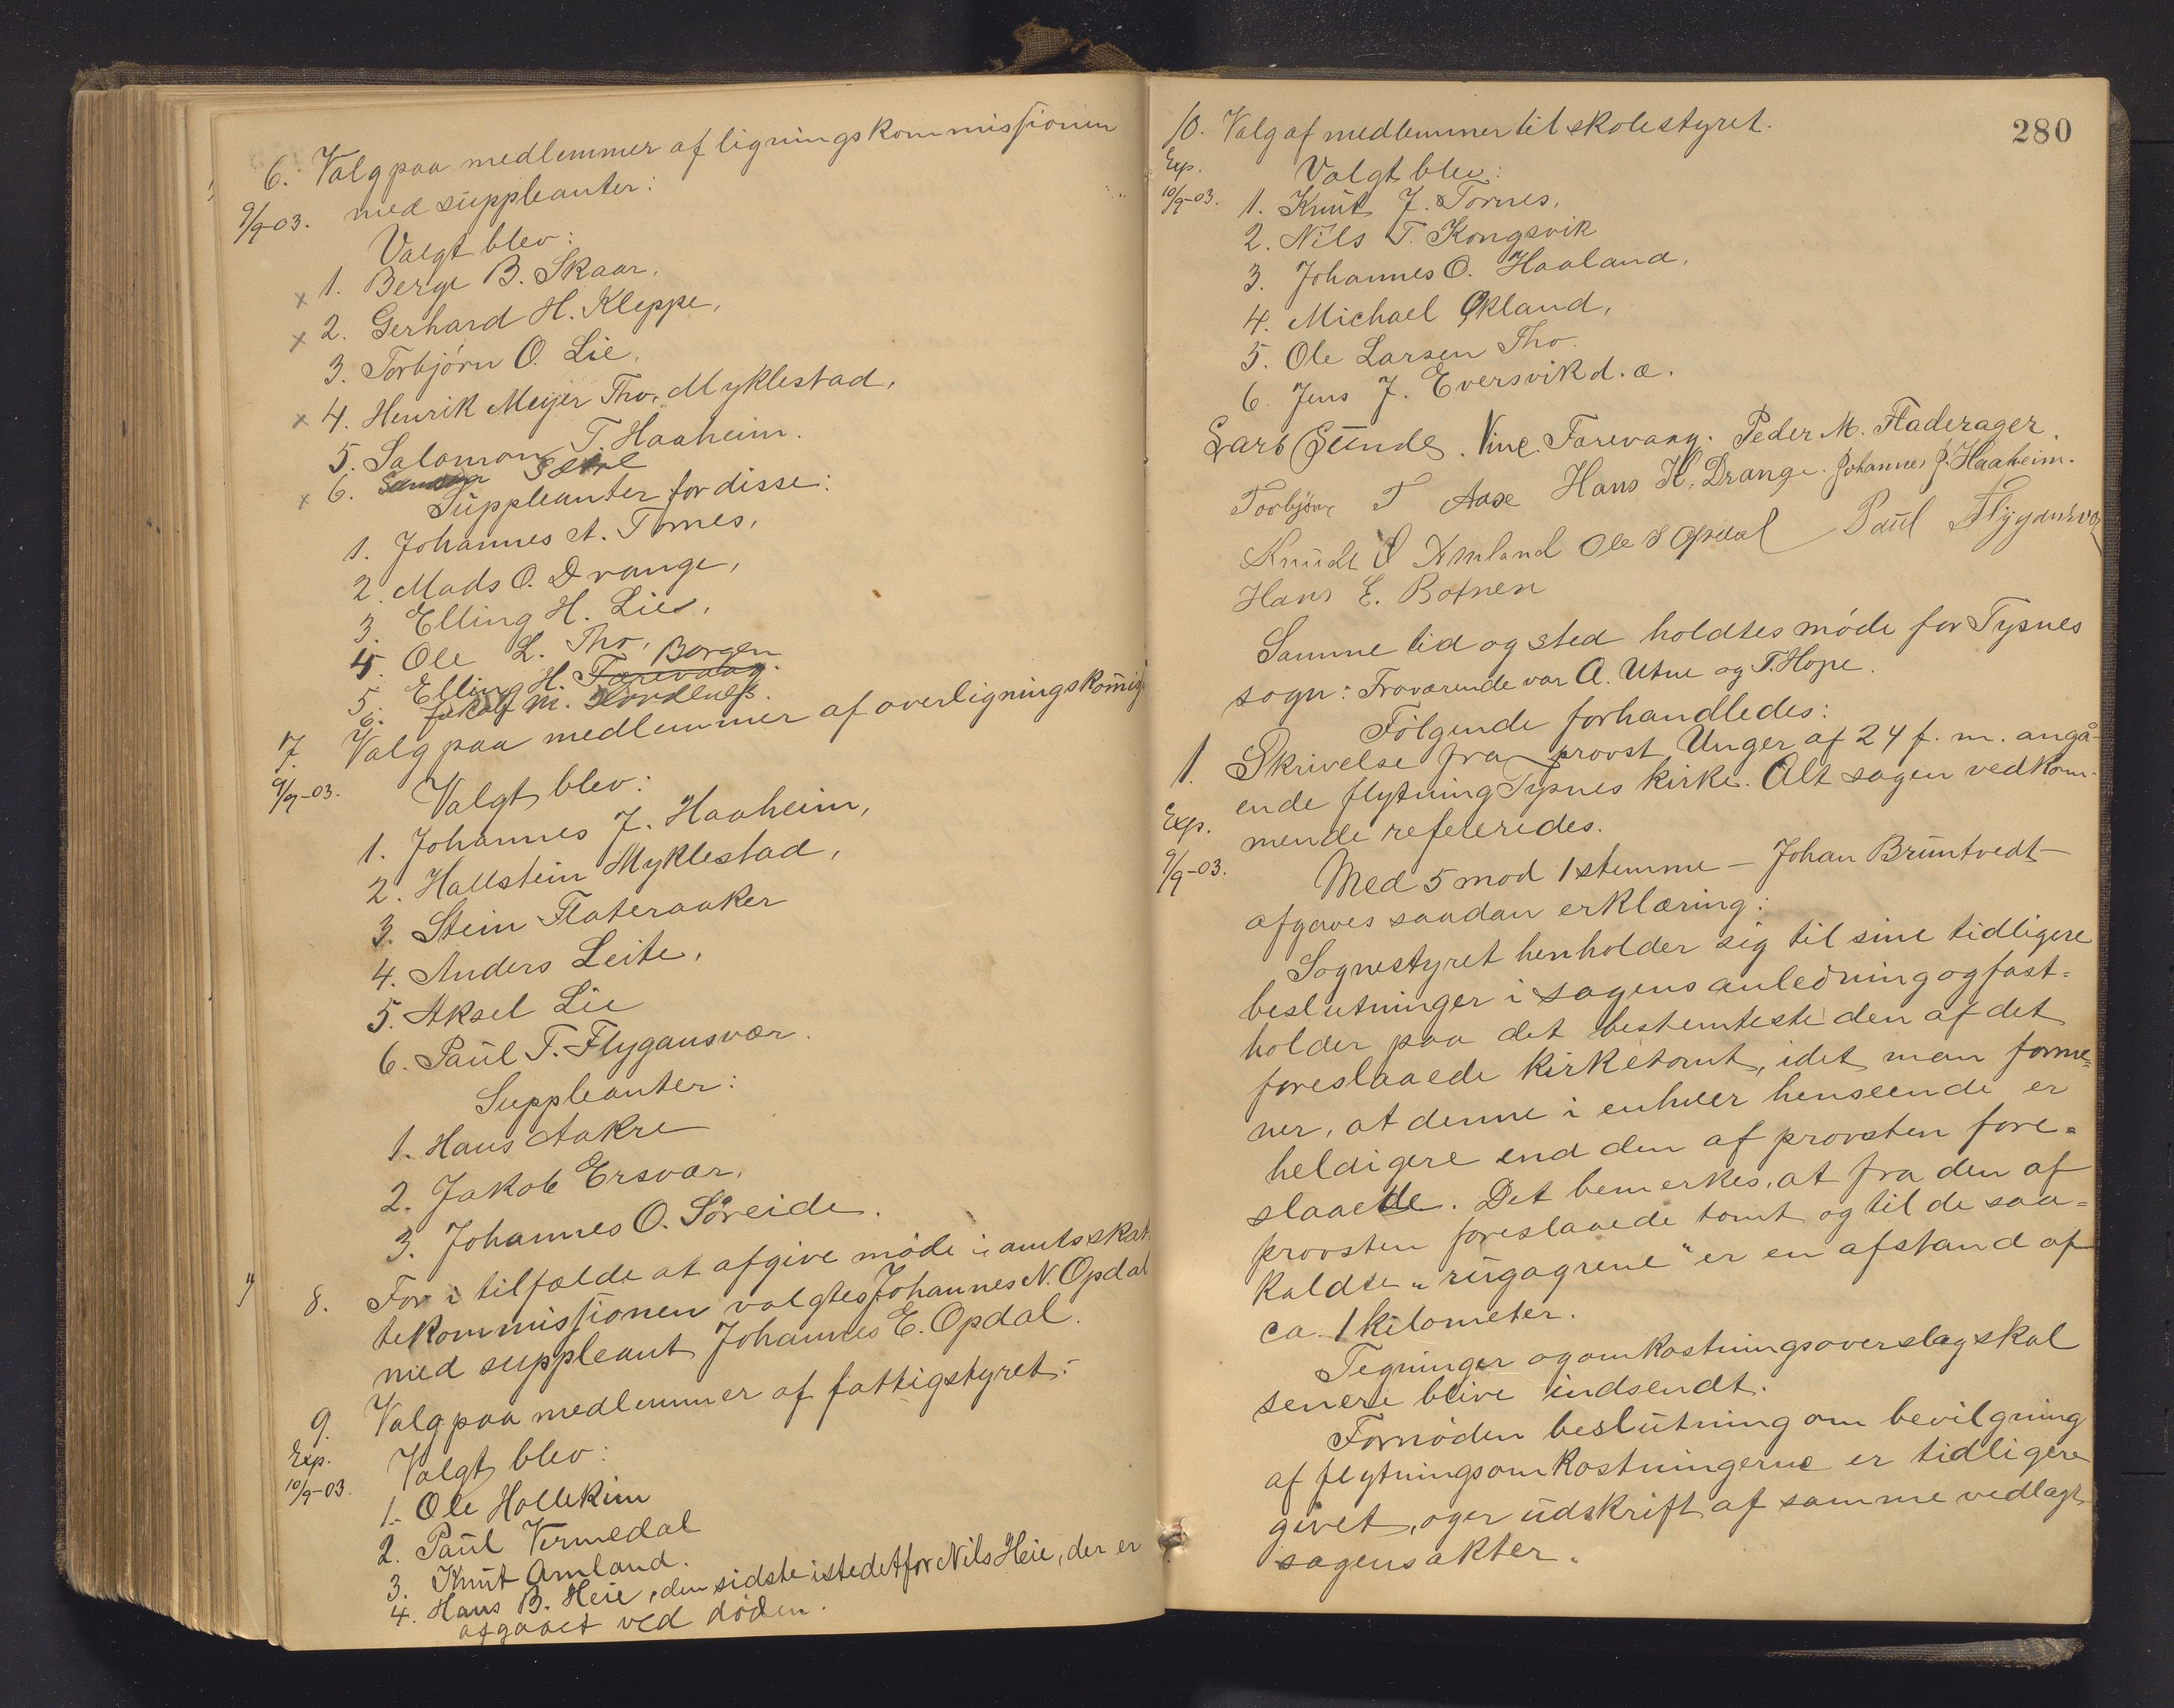 6. Valg paa medlemmer af ligningskommissionen
9/9-03. med suppleanter:
Valgt blev:
x 1. Berge B. Skaar,
x 2. Gerhard H. Kleppe,
3. Torbjørn O. Lie,
x 4. Henrik Meyer Tho, Myklestad,
5. Salomon T. Haaheim.
x 6. Samson Sætre
Suppleanter for disse:
1. Johannes A. Tornes,
2. Mads O. Drange,
3. Elling H. Lie,
4. Ole L. Tho,
5. Elling H. Farevaag. Borgen
6. Jakob M. Nordenes.
7. Valg paa medlemmer af overligningskomis
9/9-03. Valgt blev:
1. Johannes J. Haaheim,
2. Hallstein Myklestad,
3. Stein Flateraaker
4. Anders Leite,
5. Aksel Lie
6. Paul T. Flygansvær.
Suppleanter:
1. Hans Aakre
2. Jakob Ersvær,
3. Johannes O. Søreide.
8. For i tilfælde at afgive møde i amtsskat-
tekommissionen valgtes Johannes N. Opdal
med suppleant Johannes E. Opdal.
9. Valg paa medlemmer af fattigstyret:
Exp. Valgt blev:
10/9-03.
1. Ole Hollekim
2. Paul Vermedal
3. Knut Amland.
4. Hans B. Heie, den sidste istedetfor Nils Heie, der er
afgaaet ved døden.
280
10. Valg af medlemmer til skolestyret.
Exp. Valgt blev:
10/9-03. 1. Knut J. Tornes,
2. Nils T. Kongsvik
3. Johannes O. Haaland,
4. Michael Økland,
5. Ole Larsen Tho.
6. Jens J. Eversvik d. æ.
Lars Sunde. Vinc. Farevaag. Peder M. Fladerager.
Torbjørn T Aase Hans K. Drange. Johannes J. Haaheim.
Knudt O Amland Ole S Opdal Paul Flygansvær
Hans E. Botnen
Samme tid og sted holdtes møde for Tysnes
sogn: Fraværende var A. Utne og T. Hope.
Følgende forhandledes:
1. Skrivelse fra provst Unger af 24 f. m. angå-
ende flytning Tysnes kirke. Alt sagen vedkom-
Exp. mende refereredes.
9/9-03. Med 5 mod 1 stemme – Johan Bruntvedt –
afgaves saadan erklæring:
Sognestyret henholder sig til sine tidligere
beslutninger i sagens anledning og fast-
holder paa det bestemteste den af det
foreslaaede kirketomt, idet man forme-
ner, at denne i enhver henseende er
heldigere end den af provsten fore-
slaaede. Det bemerkes, at fra den af
provsten foreslaaede tomt og til de saa-
kaldte "rugagrene" er en afstand af
ca. 1 kilometer.
Tegninger og omkostningsoverslag skal
senere blive indsendt.
Fornøden beslutning om bevilgning
af flytningsomkostningerne er tidligere
givet, og er udskrift af samme vedlagt
sagens akter.